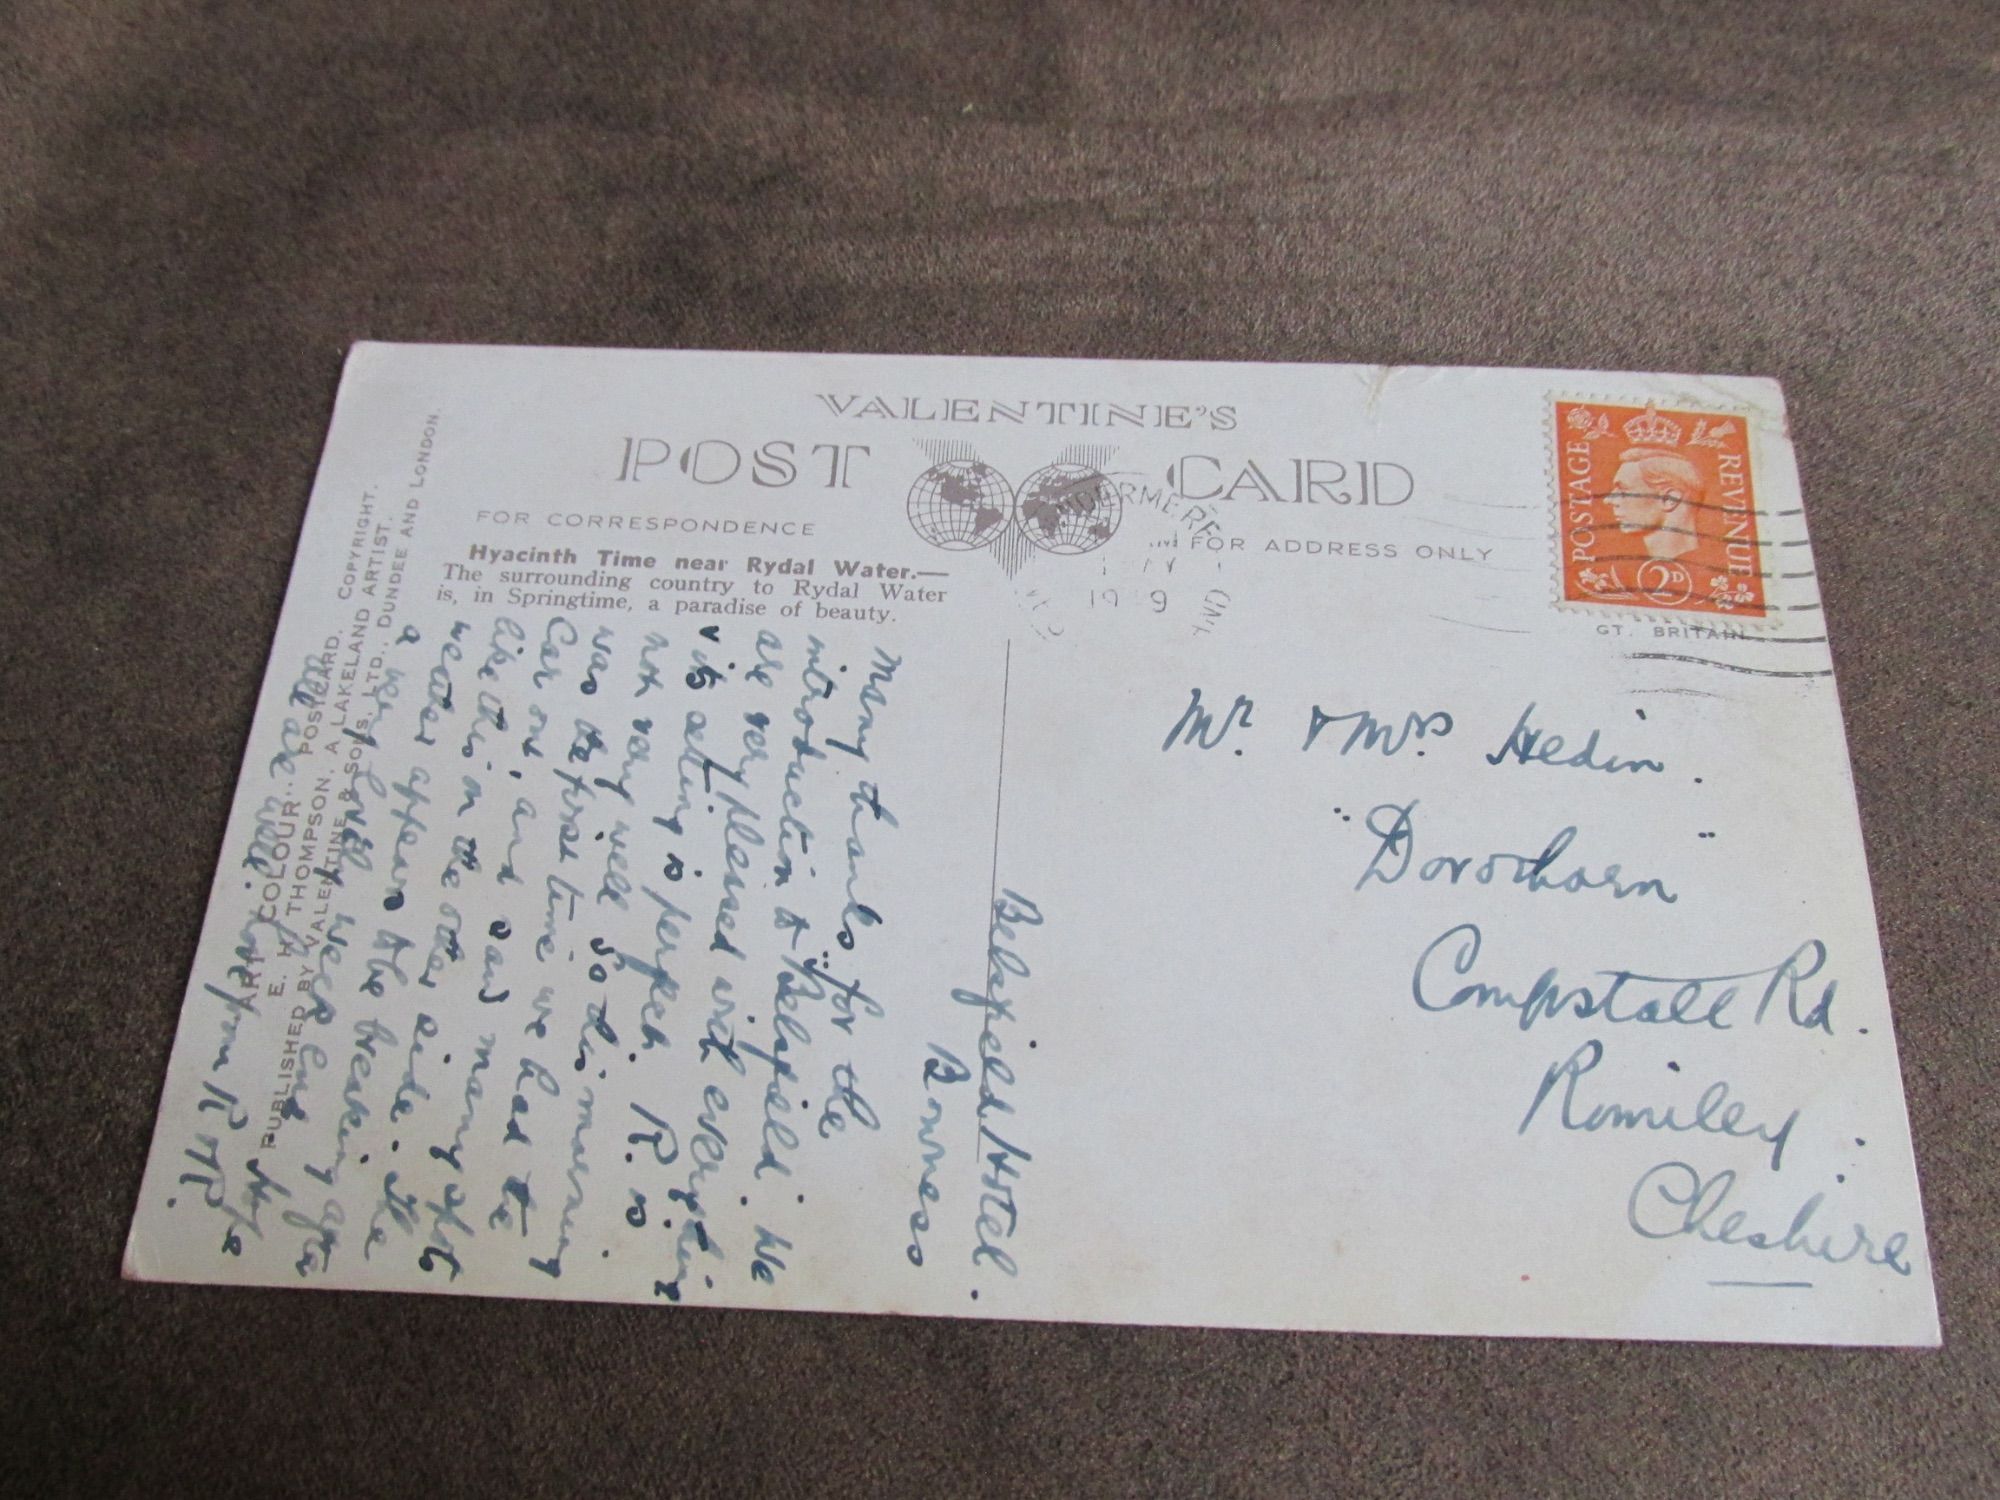 VALENTINE'S
POST CARD
FOR CORRESPONDENCE
FOR ADDRESS ONLY
Hyacinth Time near Rydal Water.—
The surrounding country to Rydal Water
is, in Springtime, a paradise of beauty.
POSTAGE REVENUE
2D
GT. BRITAIN
WINDERMERE
Belsfield Hotel.
Bowness
Many thanks for the
introduction to "Belsfield". We
are very pleased with everything
its setting is perfect. R. is
not very well so this morning
was the first time we had the
Car out, and saw many spots
like this on the other side. The
weather appears to be breaking after
a very lovely week end. Hope
all are well. Love from R. M.
Mr. & Mrs Hedin.
Compstall Rd.
Romiley.
Cheshire
"ART COLOUR" POSTCARD.
E. H. THOMPSON, A LAKELAND ARTIST. COPYRIGHT.
PUBLISHED BY VALENTINE & SONS, LTD., DUNDEE AND LONDON.